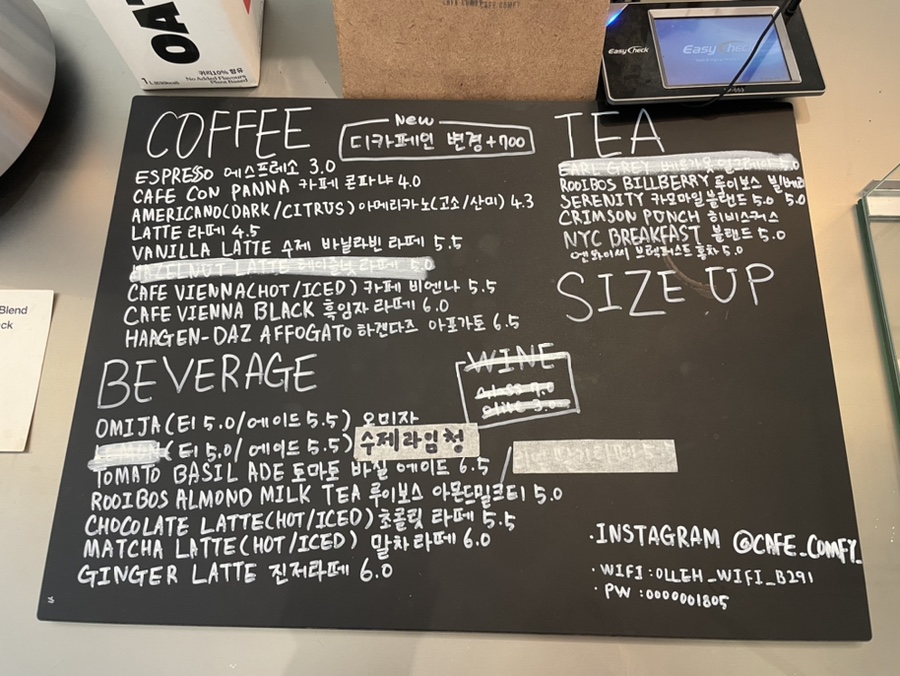 OAT
카라10% 함유
No Added Flavours
Plant Based
EasyCheck
EasyCheck
Blend
ck
COFFEE
New
디카페인 변경+700
ESPRESSO 에스프레소 3.0
CAFE CON PANNA 카페 콘파냐 4.0
AMERICANO(DARK/CITRUS) 아메리카노(고소/산미) 4.3
LATTE 라떼 4.5
VANILLA LATTE 수제 바닐라빈 라떼 5.5
HAZELNUT LATTE 헤이즐넛 라떼 5.0
CAFE VIENNA(HOT/ICED) 카페 비엔나 5.5
CAFE VIENNA BLACK 흑임자 라떼 6.0
HAAGEN-DAZ AFFOGATO 하겐다즈 아포가토 6.5
TEA
EARL GREY 베르가못 얼그레이 5.0
ROOIBOS BILLBERRY 루이보스 빌베리
5.0
SERENITY 카모마일 블랜드 5.0
CRIMSON PUNCH 히비스커스
NYC BREAKFAST 블랜드 5.0
엔와이씨 브렉퍼스트 홍차 5.0
SIZE UP
WINE
glass 7.0
BEVERAGE
OMIJA(티 5.0/에이드 5.5) 오미자
LEMON(티 5.0/에이드 5.5) 수제라임청
TOMATO BASIL ADE 토마토 바질 에이드 6.5
ROOIBOS ALMOND MILK TEA 루이보스 아몬드밀크티 5.0
CHOCOLATE LATTE(HOT/ICED) 초콜릿 라떼 5.5
MATCHA LATTE(HOT/ICED) 말차라떼 6.0
GINGER LATTE 진저라떼 6.0
·INSTAGRAM @CAFE_COMFY_
·WIFI:OLLEH_WIFI_B291
·PW:0000001805